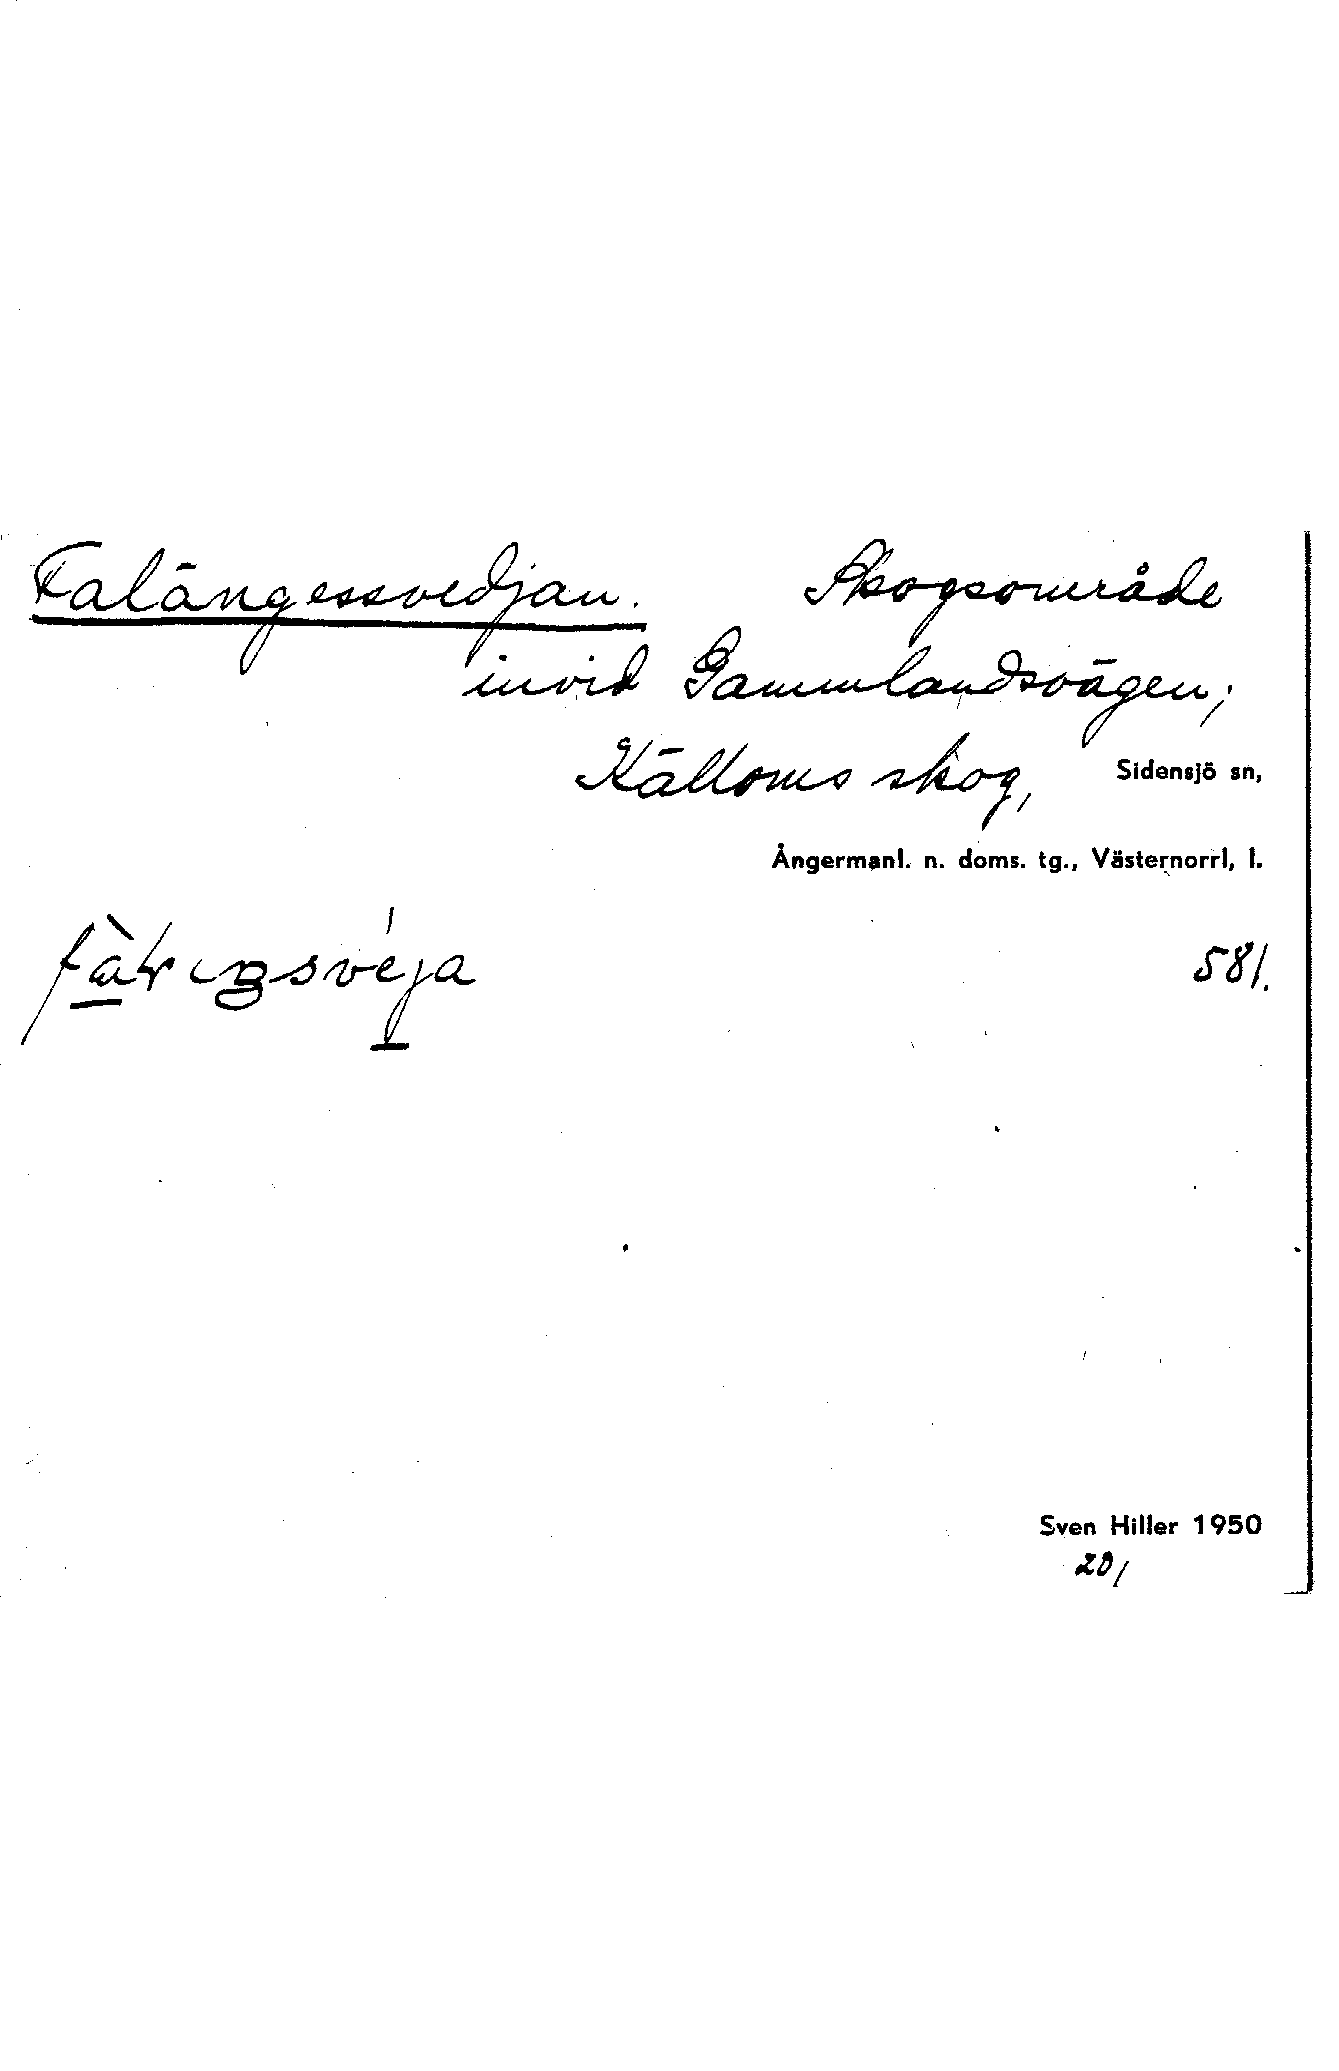 Falängessvedjan. Skogsområde
invid Gammlandsvägen;
Källoms skog, Sidensjö sn,
Ångermanl. n. doms. tg., Västernorrl, l.
581.
Sven Hiller 1950
20/